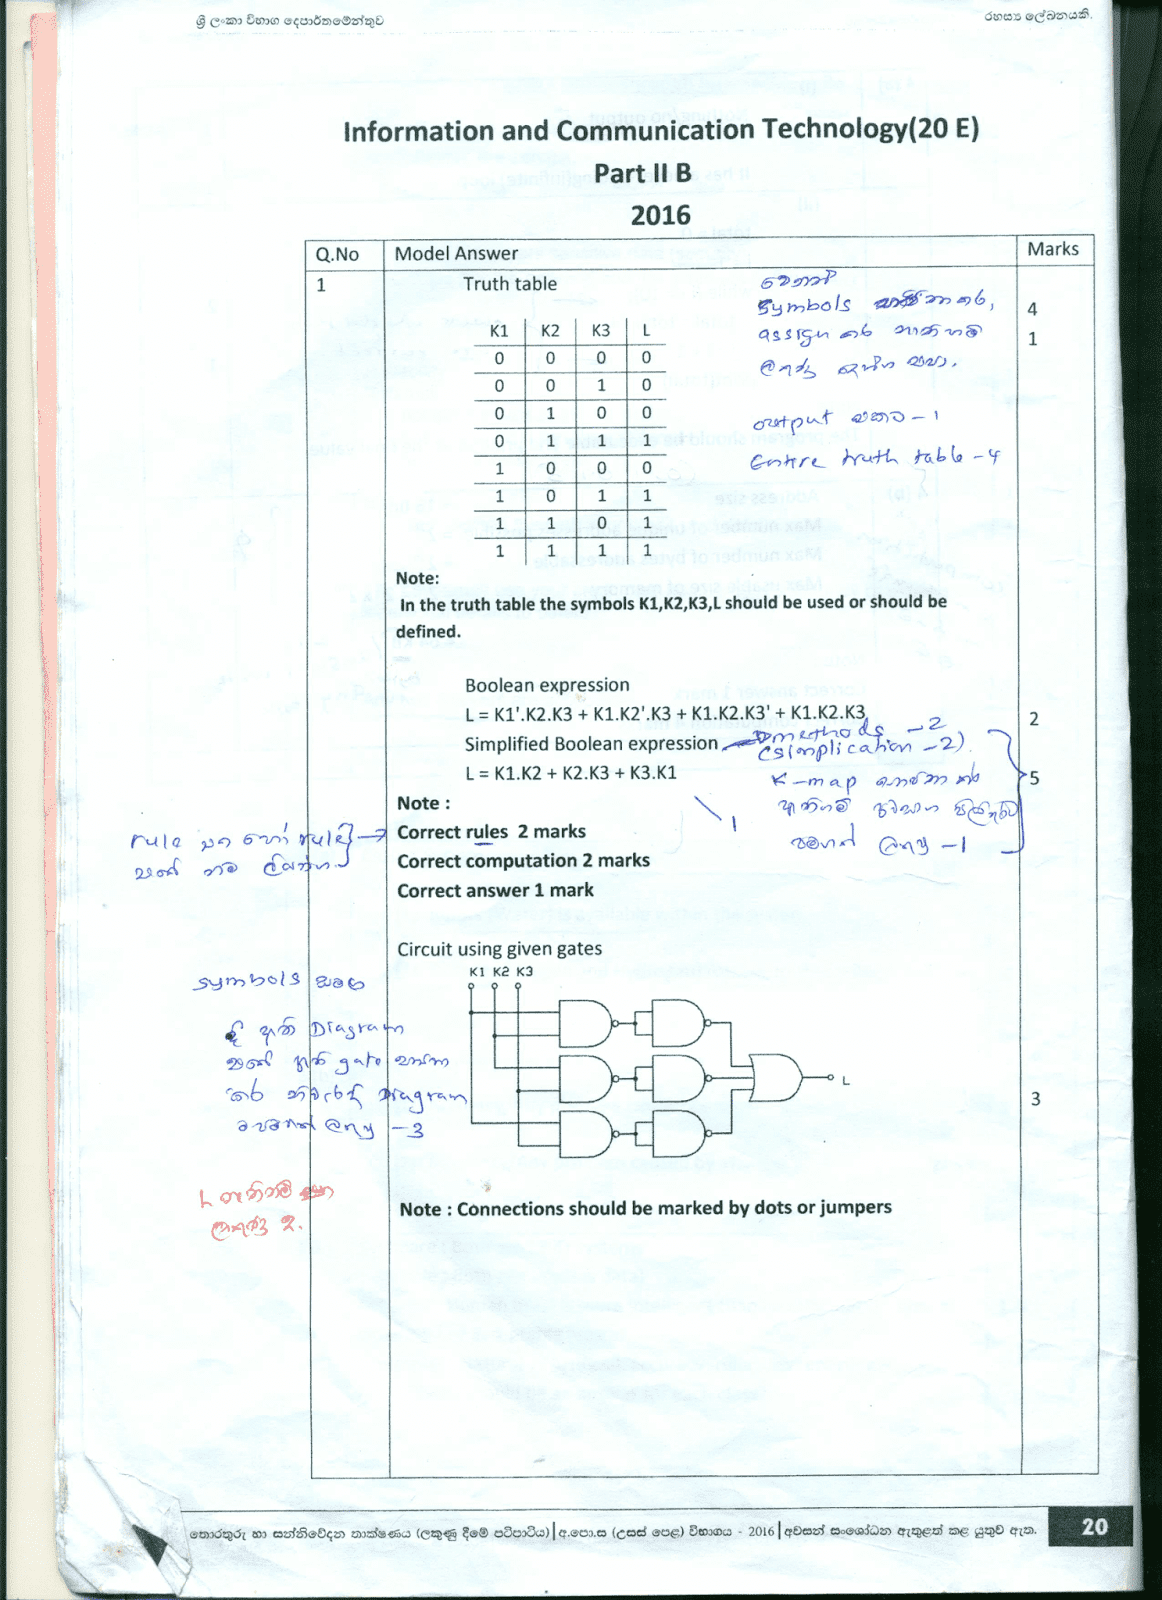 ශ්‍රී ලංකා විභාග දෙපාර්තමේන්තුව
රහස්‍ය ලේඛනයකි.
Information and Communication Technology(20 E)
Part II B
2016
Q.No Model Answer Marks
1 Truth table
symbols
4
assign
1
K1 K2 K3 L
0 0 0 0
0 0 1 0
0 1 0 0
0 1 1 1
1 0 0 0
1 0 1 1
1 1 0 1
1 1 1 1
output - 1
Entire truth table - 4
Note:
In the truth table the symbols K1,K2,K3,L should be used or should be
defined.
Boolean expression
L = K1'.K2.K3 + K1.K2'.K3 + K1.K2.K3' + K1.K2.K3 2
methods - 2
Simplified Boolean expression (simplication - 2)
L = K1.K2 + K2.K3 + K3.K1 5
K-map
Note :
Correct rules 2 marks
rule හෝ rule
Correct computation 2 marks
- 1
Correct answer 1 mark
Circuit using given gates
K1 K2 K3
L
3
symbols
ඇති Diagram
gate
Diagram
- 3
L
2.
Note : Connections should be marked by dots or jumpers
තොරතුරු හා සන්නිවේදන තාක්ෂණය (ලකුණු දීමේ පටිපාටිය) | අ.පො.ස (උසස් පෙළ) විභාගය - 2016 | අවසන් සංශෝධන ඇතුළත් කළ යුතුව ඇත. 20